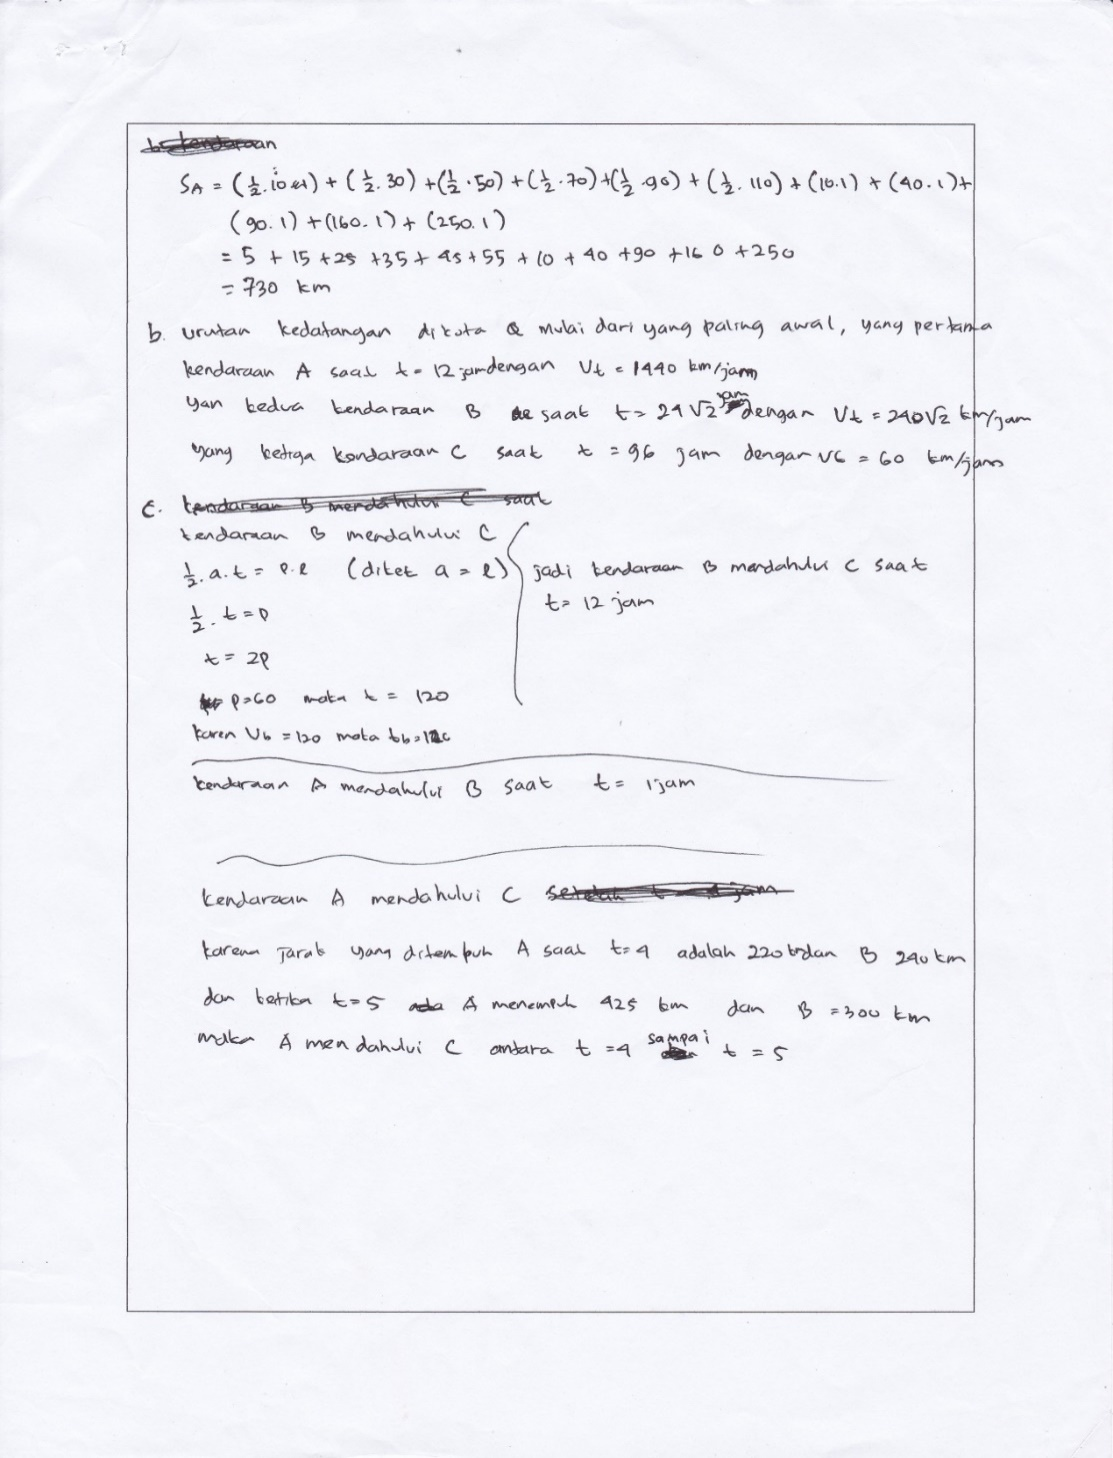 S_A = (1/2 . 10 . 1) + (1/2 . 30) + (1/2 . 50) + (1/2 . 70) + (1/2 . 90) + (1/2 . 110) + (10.1) + (40.1) +
(90.1) + (160.1) + (250.1)
= 5 + 15 + 25 + 35 + 45 + 55 + 10 + 40 + 90 + 160 + 250
= 730 km
b. urutan kedatangan di kota Q mulai dari yang paling awal, yang pertama
kendaraan A saat t = 12 jam dengan Vt = 1440 km/jam
yan kedua kendaraan B saat t = 24√2 jam dengan Vt = 240√2 km/jam
yang ketiga kendaraan C saat t = 96 jam dengan Vt = 60 km/jam
c. kendaraan B mendahului C saat
kendaraan B mendahului C
1/2 . a . t = p . l (diket a = l) jadi kendaraan B mendahului C saat
1/2 . t = p t = 12 jam
t = 2p
p = 60 maka t = 120
karen Vb = 120 maka
kendaraan A mendahului B saat t = 1 jam
kendaraan A mendahului C
karena jarak yang ditempuh A saat t = 4 adalah 220 dan B 240 km
dan ketika t = 5 A menempuh 425 km dan B = 300 km
maka A mendahului C antara t = 4 sampai t = 5